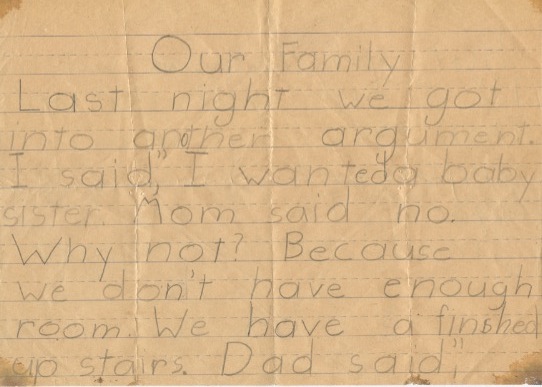 Our Family
Last night we got
into another argument.
I said," I wanted a baby
sister. Mom said no.
Why not? Because
we don't have enough
room. We have a finshed
up stairs. Dad said,"